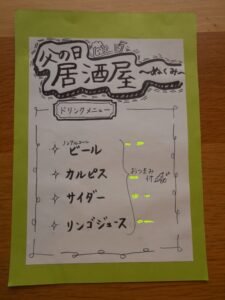 父の日
居酒屋
〜ぬくみ〜
ドリンクメニュー
ノンアルコール
ビール
カルピス
サイダー
リンゴジュース
おつまみ
付き